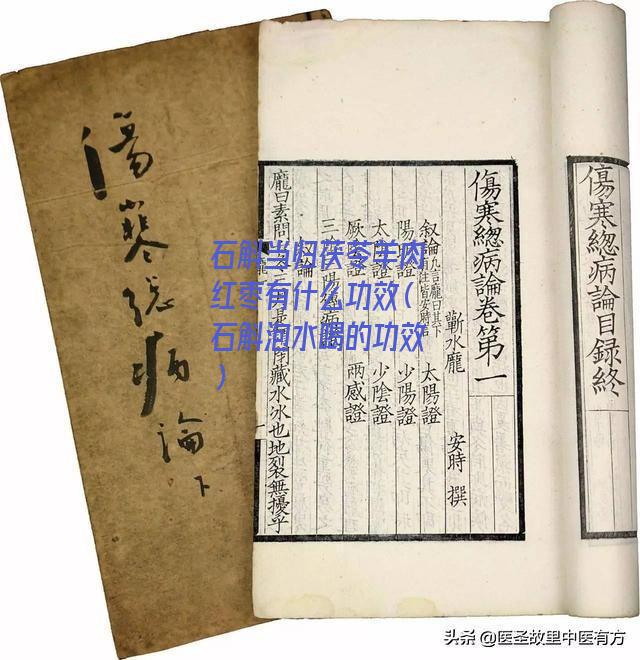 傷寒緫病論目録終
傷寒緫病論卷第一
蘄水龐 安時 撰
叙論 言龐曰其下 太陽證
陽明證 少陽證
太陰證 少陰證
厥陰證 兩感證
三陰三陽
叙論
龐曰素問 藏水冰也地裂無擾乎
傷寒總病論下
石斛当归茯苓羊肉
红枣有什么功效(
石斛泡水喝的功效
)
头条 @医圣故里中医有方